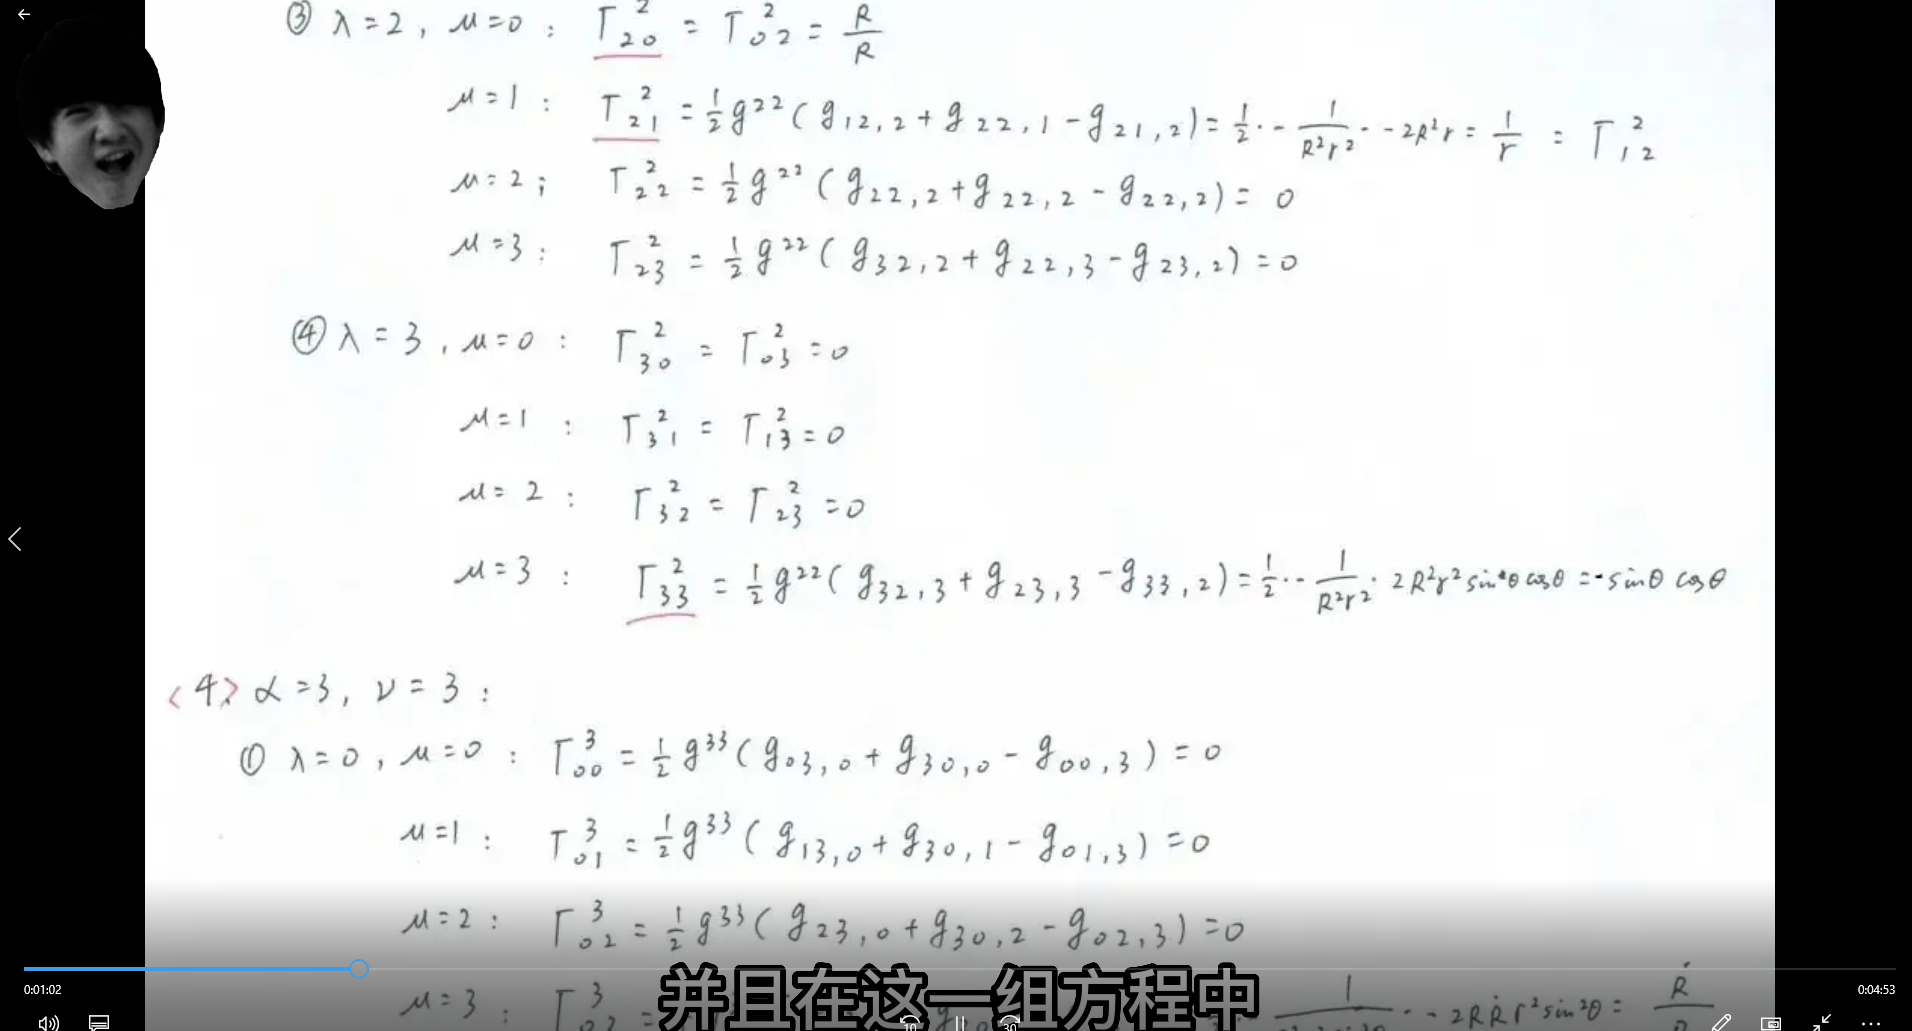 ③ λ=2, μ=0: Γ²₂₀ = Γ²₀₂ = Ṙ/R
μ=1: Γ²₂₁ = ½g²²(g₁₂,₂ + g₂₂,₁ - g₂₁,₂) = ½·-1/(R²r²)·-2R²r = 1/r = Γ²₁₂
μ=2; Γ²₂₂ = ½g²²(g₂₂,₂ + g₂₂,₂ - g₂₂,₂) = 0
μ=3: Γ²₂₃ = ½g²²(g₃₂,₂ + g₂₂,₃ - g₂₃,₂) = 0
④ λ=3, μ=0: Γ²₃₀ = Γ²₀₃ = 0
μ=1: Γ²₃₁ = Γ²₁₃ = 0
μ=2: Γ²₃₂ = Γ²₂₃ = 0
μ=3: Γ²₃₃ = ½g²²(g₃₂,₃ + g₂₃,₃ - g₃₃,₂) = ½·-1/(R²r²)·2R²r²sinθcosθ = -sinθ cosθ
<4> α=3, ν=3:
① λ=0, μ=0: Γ³₀₀ = ½g³³(g₀₃,₀ + g₃₀,₀ - g₀₀,₃) = 0
μ=1: Γ³₀₁ = ½g³³(g₁₃,₀ + g₃₀,₁ - g₀₁,₃) = 0
μ=2: Γ³₀₂ = ½g³³(g₂₃,₀ + g₃₀,₂ - g₀₂,₃) = 0
μ=3: Γ³ = ·-2RṘr²sin²θ = Ṙ
并且在这一组方程中
0:01:02
0:04:53
10
30